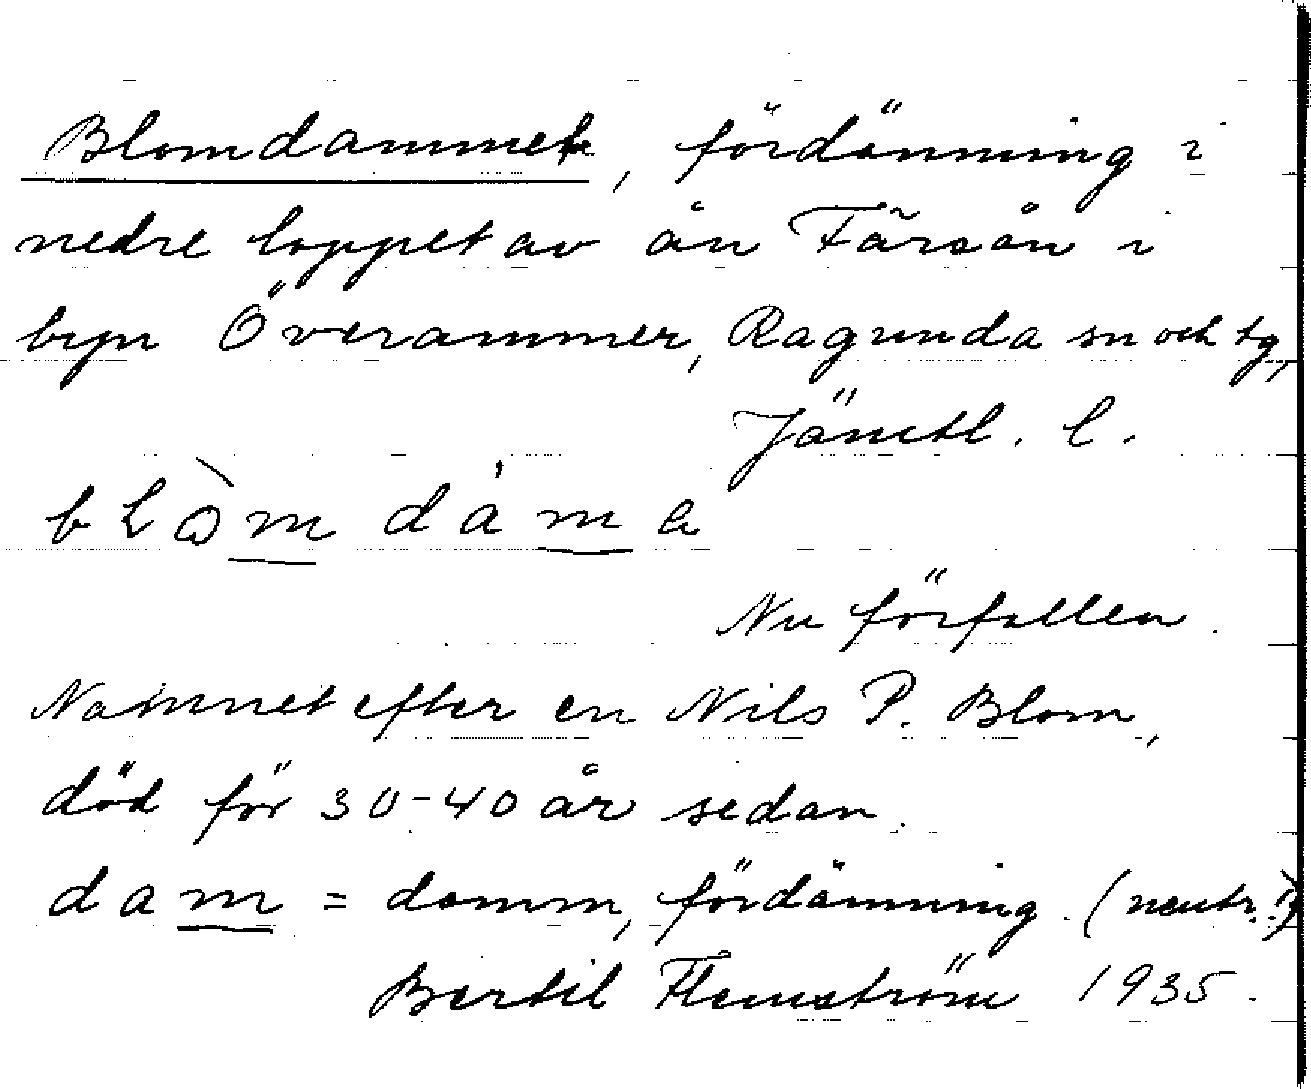 Blomdammet, fördämning i
nedre loppet av ån Färsån i
byn Överammer, Ragunda sn och tg,
Jämtl. l.
blòm dáma
Nu förfallen.
Namnet efter en Nils P. Blom,
död för 30-40 år sedan.
dam = damm, fördämning. (neutr.?)
Bertil Flemström 1935.